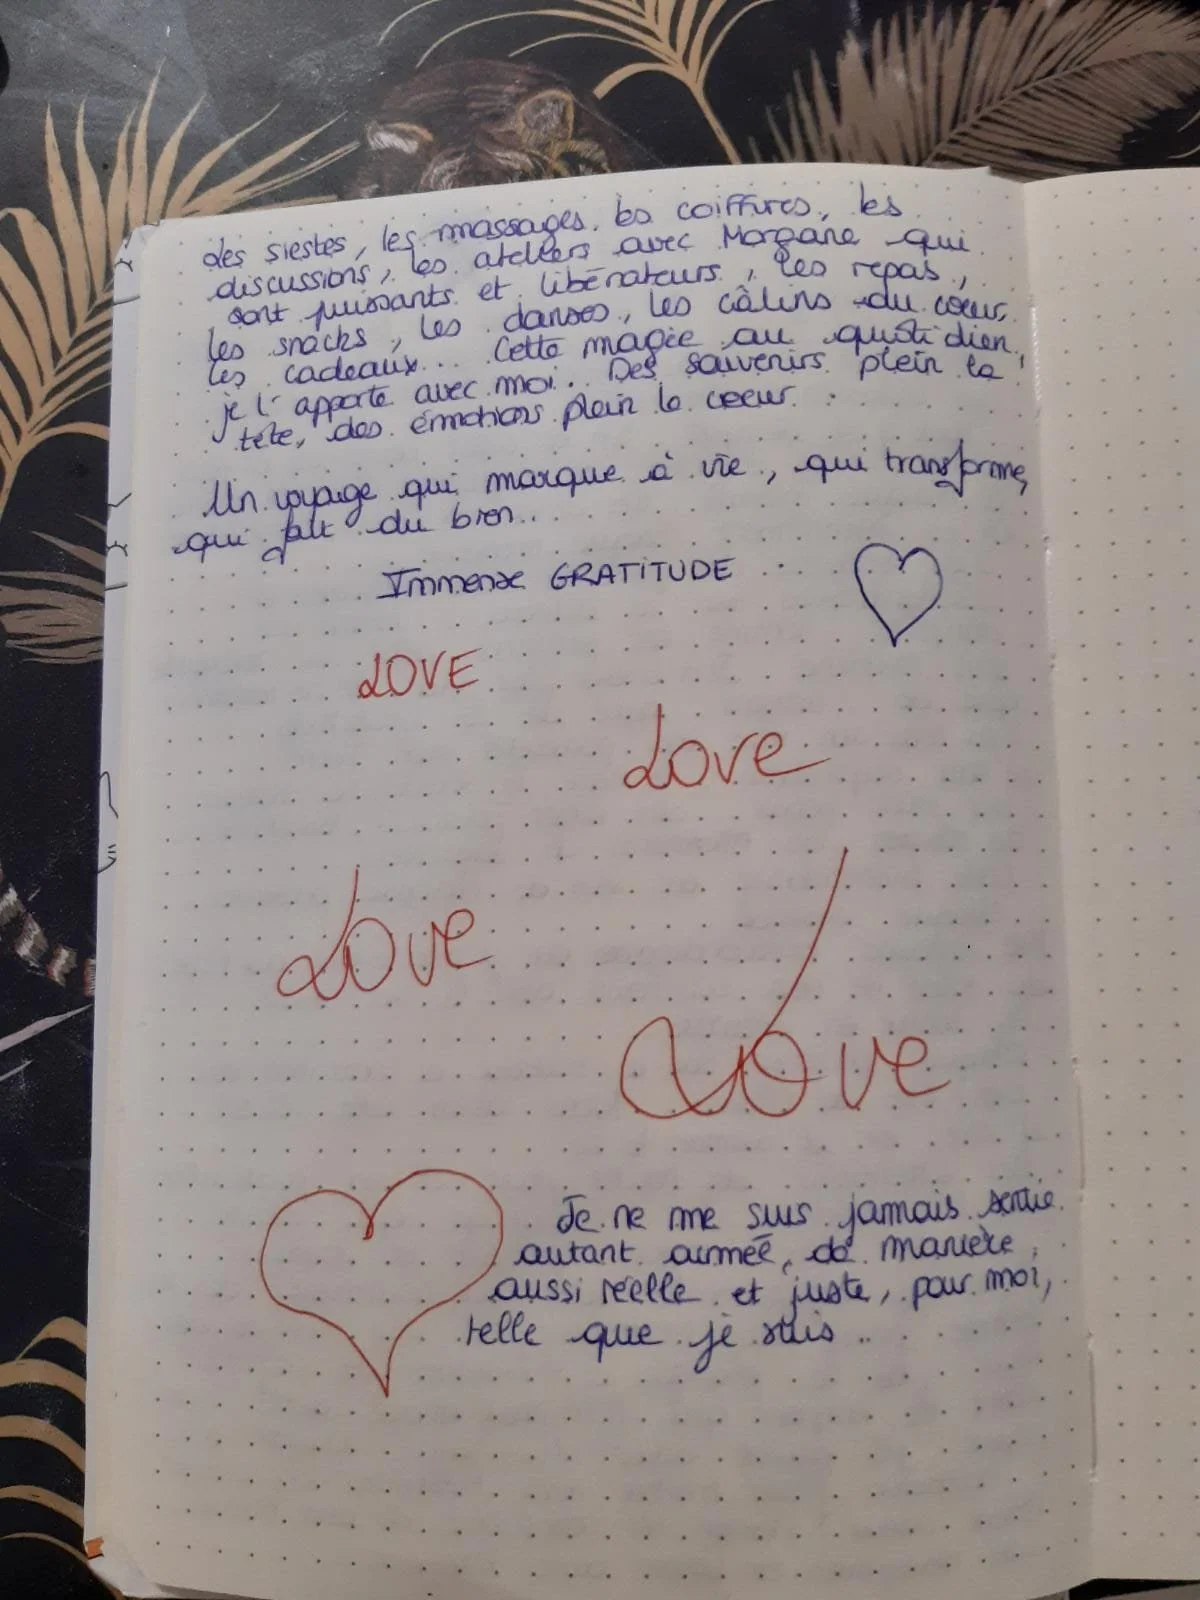 des siestes, les massages, les coiffures, les
discussions, les ateliers avec Morgane qui
sont puissants et libérateurs, les repas,
les snacks, les danses, les câlins du coeur,
les cadeaux... Cette magie au quotidien,
je l'apporte avec moi... Des souvenirs plein la
tête, des émotions plein le coeur.
Un voyage qui marque à vie, qui transforme,
qui fait du bien...
Immense GRATITUDE
LOVE
Love
Love
Love
Je ne me suis jamais sentie
autant aimée, de manière
aussi réelle et juste, pour moi,
telle que je suis..